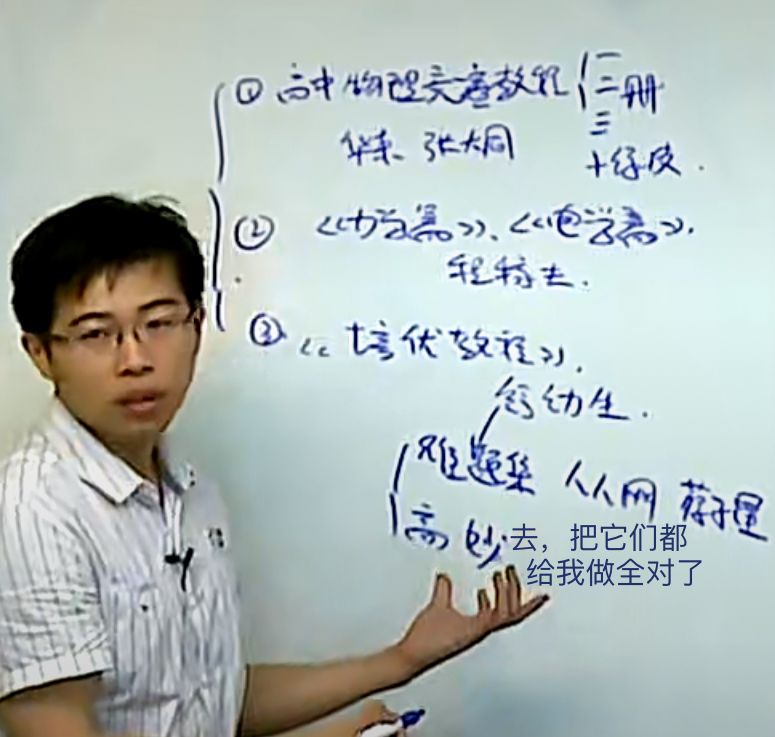 ① 高中物理竞赛教程 一二三册
华东、张大同 + 绿皮.
② 《力学篇》、《电学篇》.
程稼夫.
③ 《培优教程》.
舒幼生.
难题集 人人网 蔡子星
高妙
去,把它们都
给我做全对了